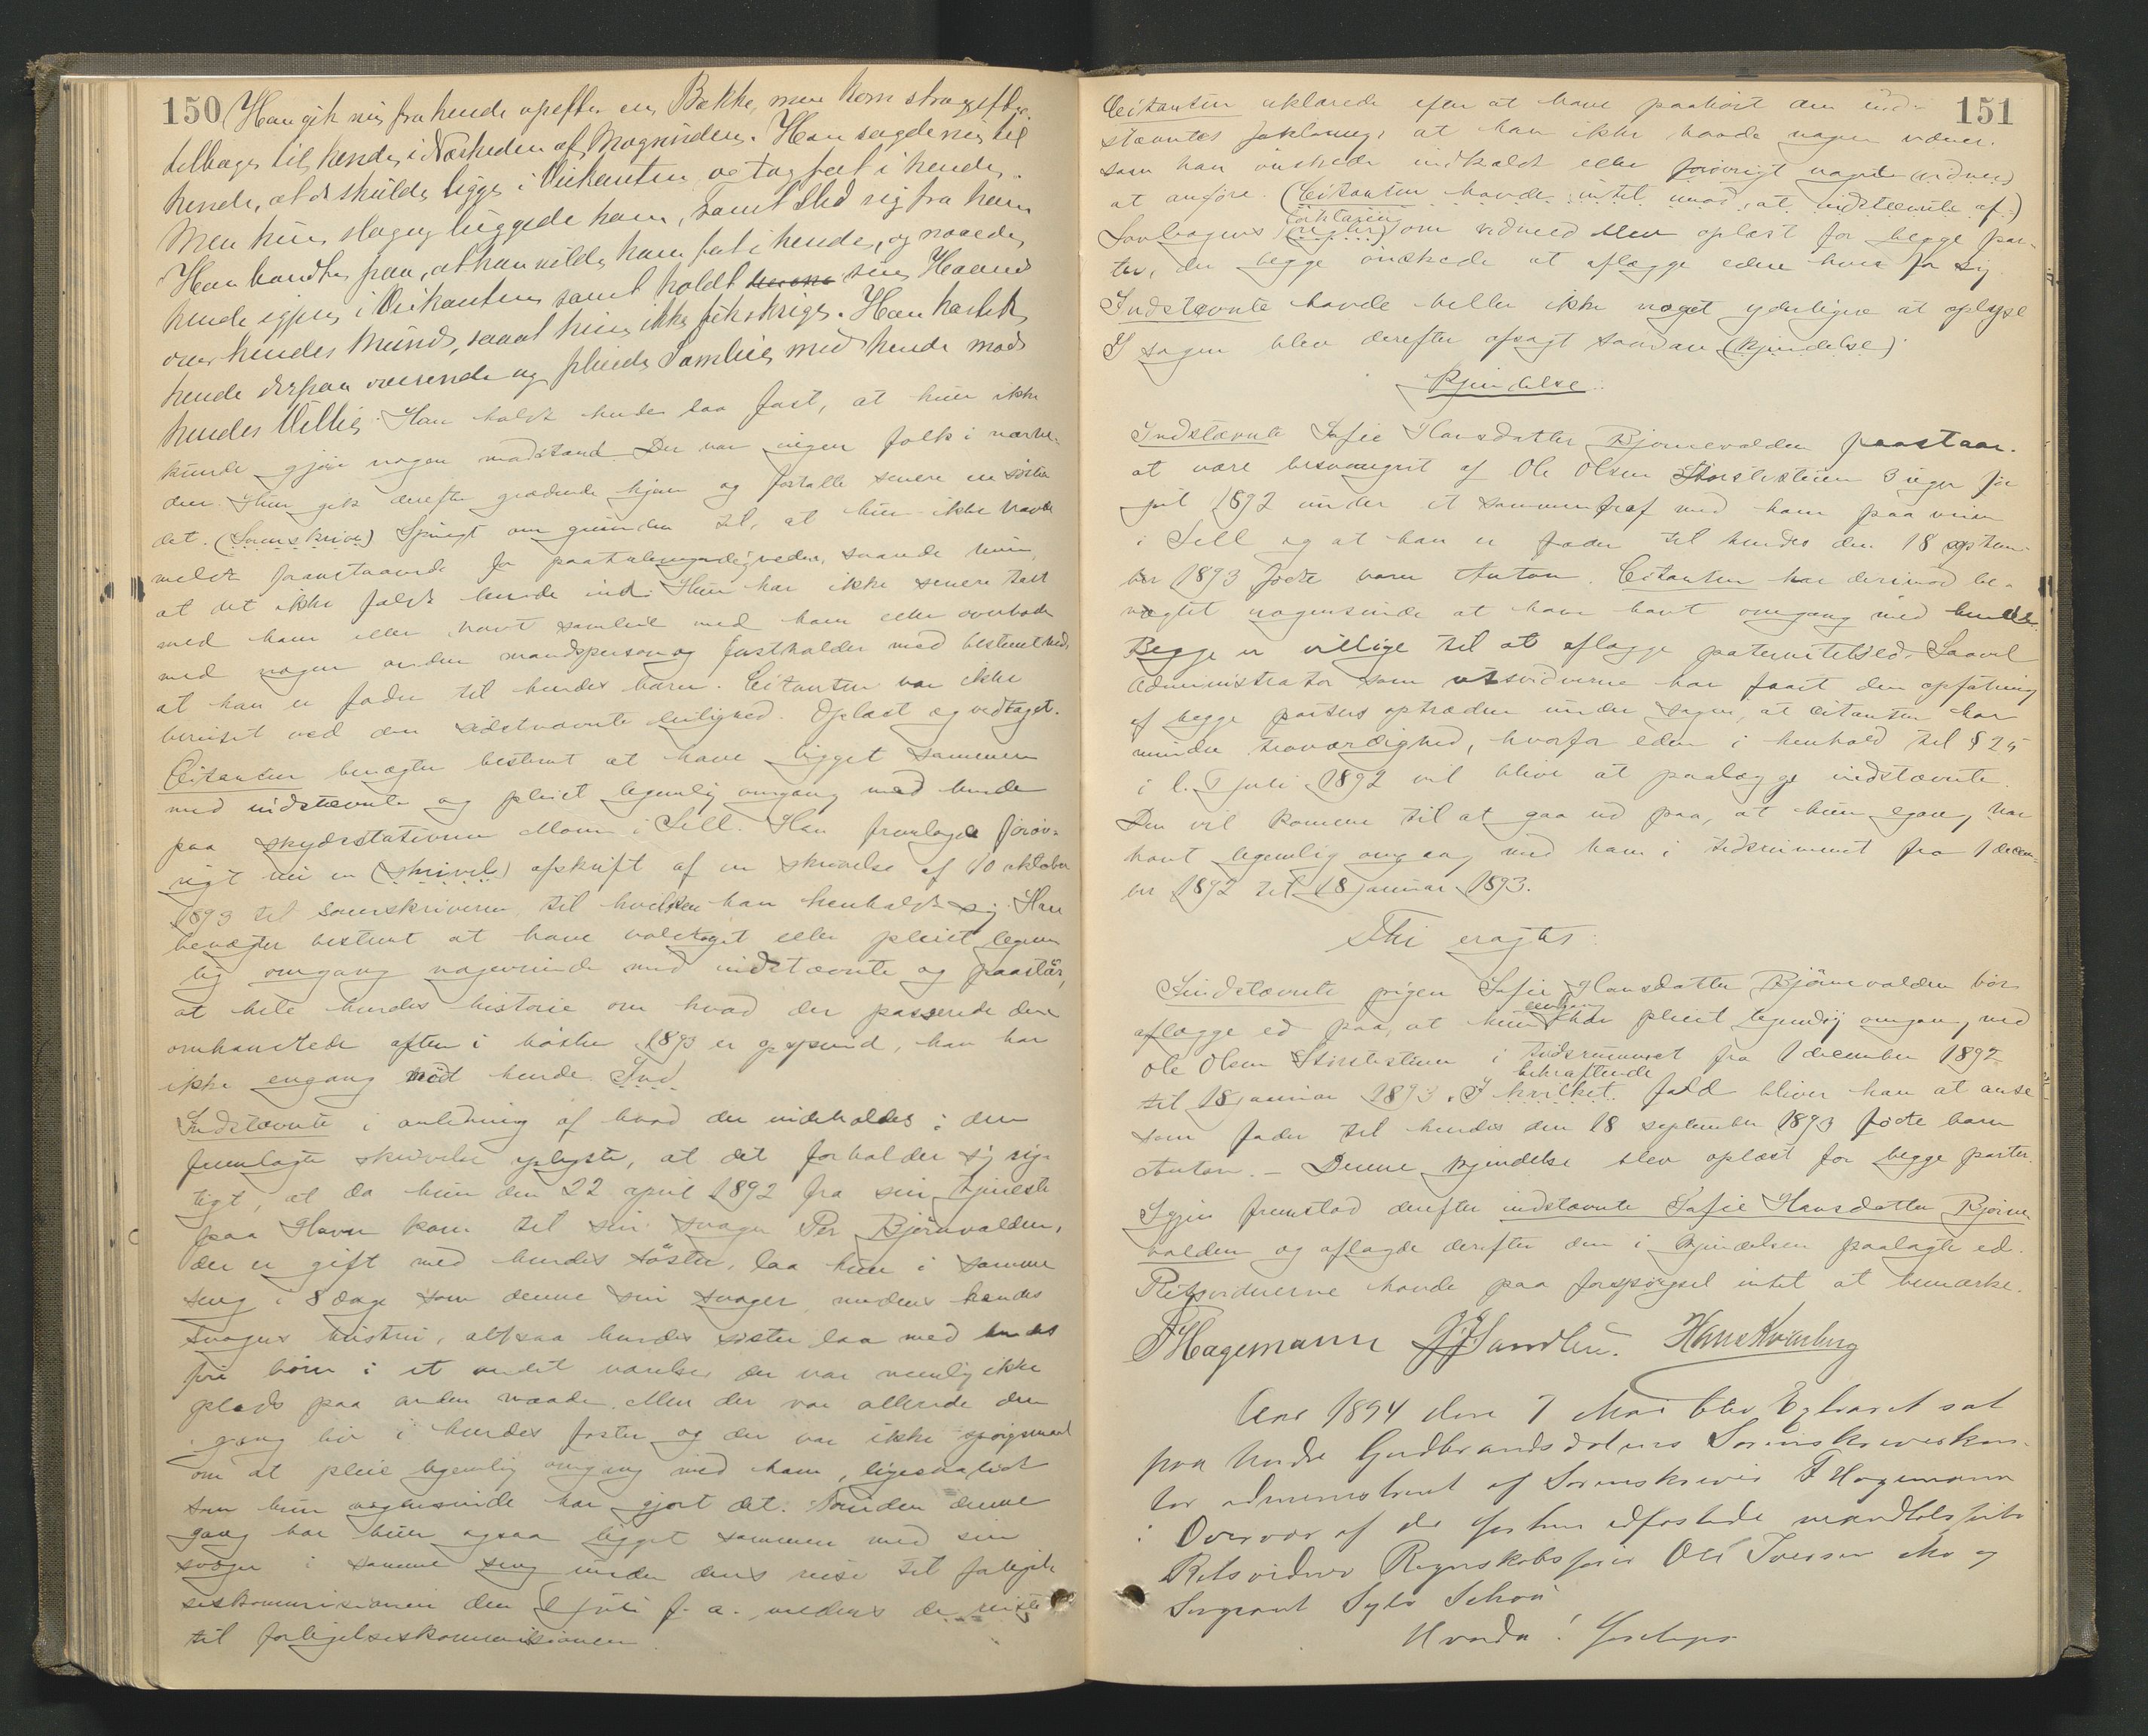 150
Han gik nu fra hende opefter en Bække, men kom strax efter
tilbage til hende i Nærheden af Mogrinden. Han sagde nu til
hende, at de skulde ligge i Veikanten og tog fat i hende.
Men hun slog og huggede ham, samt sled sig fra ham
Han bandte paa, at han vilde have fat i hende, og naaede
hende igjen i Veikanten samt holdt sin Haand
over hendes Mund, saaat hun ikke fik skrige. Han kastet
hende derpaa overende og pleiede Samleie med hende mod
hendes Villie. Han holdt hende saa fast, at hun ikke
kunde gjøre nogen modstand. Der var ingen folk i nærhe-
den. Hun gik derefter grædende hjem og fortalte senere en søster
det. (Sorenskrive) Spurgt om grunden til, at hun ikke havde
meldt foranstaaende for paatalemyndigheden, svarede hun,
at det ikke faldt hende ind. Hun har ikke senere talt
med ham eller havt samleie med ham eller overhode
med nogen anden mandsperson og fastholder med bestemthed,
at han er fader til hendes barn. Citanten var ikke
beruset ved den sidstnævnte leilighed. Oplæst og vedtaget.
Citanten benægter bestemt at have ligget sammen
med indstævnte og pleiet legemlig omgang med hende
paa skydsstationen Moen i Sell. Han fremlagde forøv-
rigt nu en (skrivels) afskrift af en skrivelse af 10 oktober
1893 til sorenskriveren, til hvilken han henholdt sig. Han
benægter bestemt at have voldtaget eller pleiet legem-
lig omgang nogensinde med indstævnte og paastår,
at hele hendes historie om hvad der passerede den
omhandlede aften i høsten 1893 er opspind, han har
ikke engang mødt hende. Ind
Indstævnte i anledning af hvad der indeholdes i den
fremlagte skrivelse oplyste, at det forholder sig rig-
tigt, at da hun den 22 april 1892 fra sin tjeneste
paa Havn kom til sin svoger Per Bjørnevolden,
der er gift med hendes søster, laa hun i samme
seng i 8 dage som denne sin svoger, medens hendes
svogers hustru, altsaa hendes søster laa med hendes
fire børn i et andet værelse, der var nemlig ikke
plads paa anden maade. Men der var allerede den
gang liv i hendes foster og der var ikke spørgsmaal
om at pleie legemlig omgang med ham, ligesaalidt
som hun nogensinde har gjort det. Foruden denne
gang har hun ogsaa ligget sammen med sin
svoger i samme seng under dens reise til forligel-
seskommissionen den 8 juli f. a. medens de reiste
til forligelseskommissionen.
151
Citanten erklærede efter at have paahørt den ind-
stævntes forklaring, at han ikke havde nogen vidner,
som han ønskede indkaldt eller forøvrigt nogle (vidner)
at anføre. (Citanten havde intet imod, at indstævnte af)
Lovbogens forklaring (regler) om vidneed blev oplæst for begge par-
ter, der begge ønskede at aflægge eden hver for sig.
Indstævnte havde heller ikke noget yderligere at oplyse
I sagen blev derefter afsagt saadan (kjendelse)
Kjendelse:
Indstævnte Sofie Hansdatter Bjørnevolden paastaar
at være besvangret af Ole Olsen 3 uger før
jul 1892 under et sammentræf med ham paa veien
i Sell og at han er fader til hendes den 18 septem-
ber 1893 fødte barn Anton. Citanten har derimod be-
nægtet nogensinde at have havt omgang med hende.
Begge er villige til at aflægge paternitetsed. Saavel
Administrator som retsvidnerne har faaet den opfatning
af begge parters optræden under sagen, at citanten har
mindre troværdighed, hvorfor eden i henhold til § 25
i l. juli 1892 vil blive at paalægge indstævnte.
Den vil komme til at gaa ud paa, at hun engang har
havt legemlig omgang med ham i tidsrummet fra 1 decem-
ber 1892 til 18 januar 1893.
Thi eragtes:
Indstævnte pigen Sofie Hansdatter Bjørnevolden bør
aflægge ed paa, at hun engang har pleiet legemlig omgang med
Ole Olsen i tidsrummet fra 1 december 1892
til 18 januar 1893. I hvilket bekræftende fald bliver han at anse
som fader til hendes den 18 september 1893 fødte barn
Anton. – Denne kjendelse blev oplæst for begge parter.
Igjen fremstod derefter indstævnte Sofie Hansdatter Bjørne-
volden og aflagde derefter den i kjendelsen paalagte ed.
Retsvidnerne havde paa forespørgsel intet at bemærke.
F Hagemann Sandlien. Hans Kvarberg
Aar 1894 den 7 Mai blev Extraret sat
paa Nordre Gudbrandsdalens Sorenskriverkon-
tor administreret af Sorenskriver F Hagemann
i Overvær af de forhen edfæstede
Retsvidner Regnskabsfører Ole Iversen Mo og
Sergeant
Hvorda!